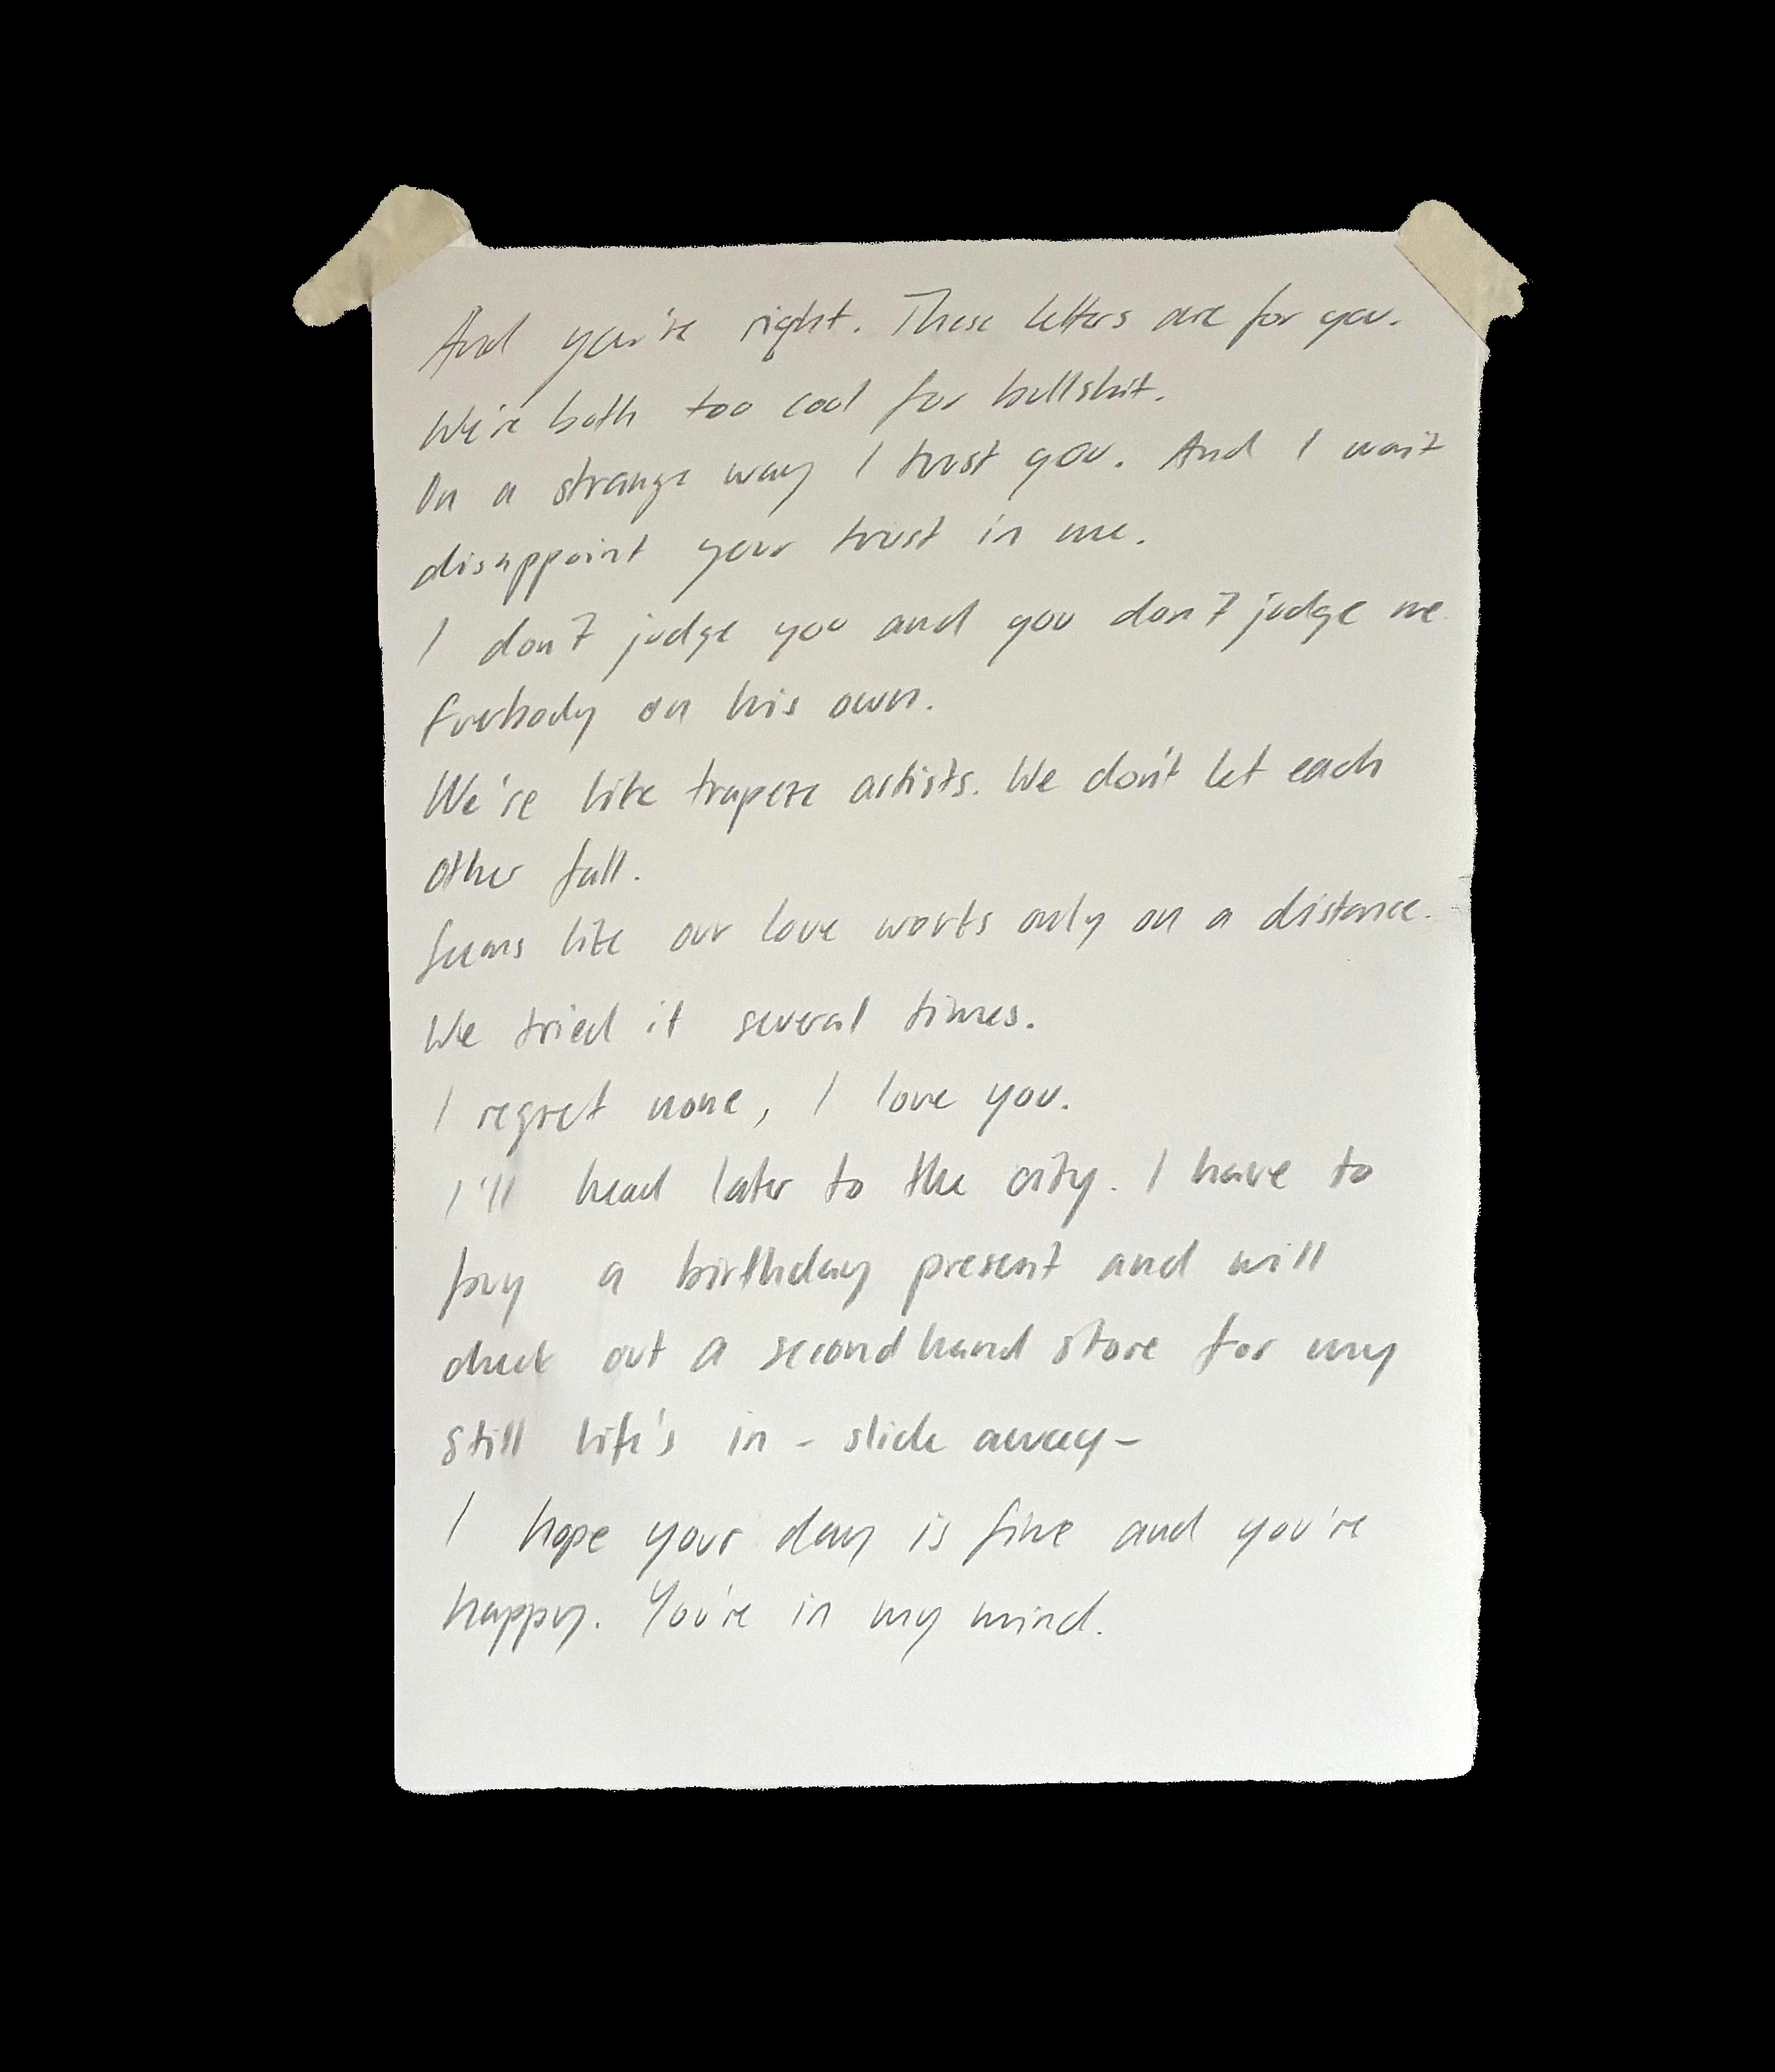 And you're right. These letters are for you.
We're both too cool for bullshit.
On a strange way I trust you. And I won't
disappoint your trust in me.
I don't judge you and you don't judge me.
Everbody on his own.
We're like trapeze artists. We don't let each
other fall.
Seems like our love works only on a distance.
We tried it several times.
I regret none, I love you.
I'll head later to the city. I have to
buy a birthday present and will
check out a second hand store for my
still life's in - slide away -
I hope your day is fine and you're
happy. You're in my mind.